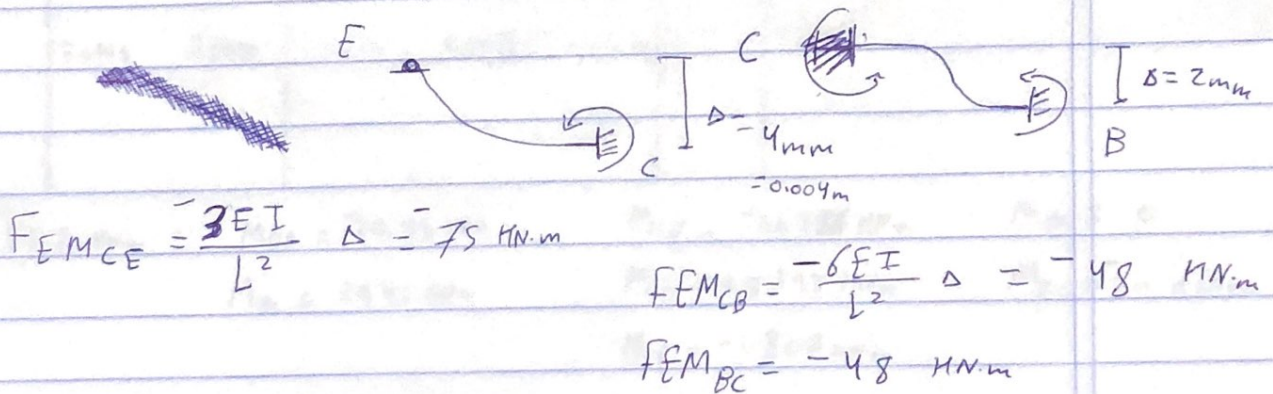 E
C
Δ =
4mm
= 0.004m
C
Δ = 2mm
B
FEM_CE = -3EI/L² Δ = -75 KN.m
FEM_CB = -6EI/L² Δ = -48 KN.m
FEM_BC = -48 KN.m